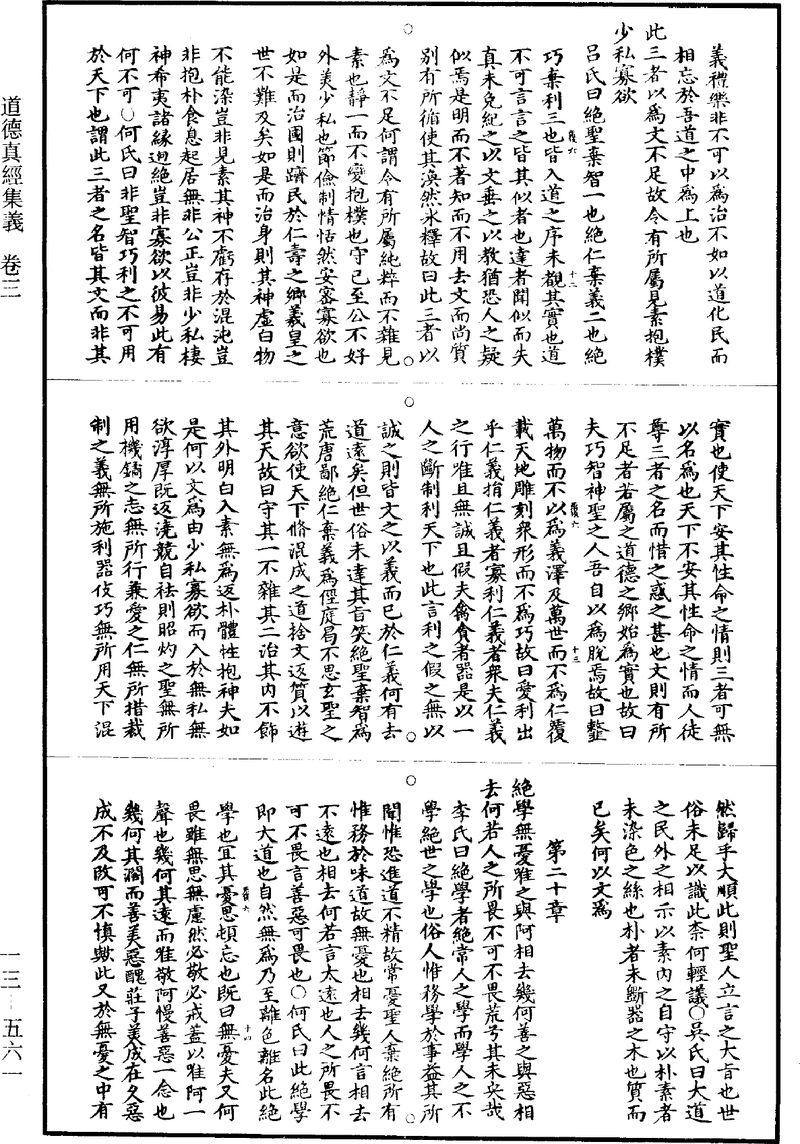 義禮樂非不可以爲治不如以道化民而
相忘於吾道之中爲上也
此三者以爲文不足故令有所屬見素抱樸
少私寡欲
呂氏曰絕聖棄智一也絕仁棄義二也絕
巧棄利三也皆入道之序未覩其實也道
十二
不可言言之皆其似者也達者聞似而失
真未免紀之以文垂之以教猶恐人之疑
似焉是明而不著知而不用去文而尚質
別有所循使其渙然氷釋故曰此三者以
爲文不足何謂令有所屬純粹而不雜見
素也靜一而不變抱樸也守已至公不好
外美少私也節儉制情恬然安審寡欲也
如是而治國則躋民於仁壽之鄉羲皇之
世不難及矣如是而治身則其神虛白物
不能染豈非見素其神不虧存於混沌豈
非抱朴食息起居無非公正豈非少私棲
神希夷諸緣迥絕豈非寡欲以彼易此有
何不可○何氏曰非聖智巧利之不可用
於天下也謂此三者之名皆其文而非其
實也使天下安其性命之情則三者可無
以名爲也天下不安其性命之情而人徒
尊三者之名而惜之惑之甚也文則有所
不足者若屬之道德之鄉始爲實也故曰
夫巧智神聖之人吾自以爲脫焉故曰䪠
十三
萬物而不以爲義澤及萬世而不爲仁覆
載天地雕刻衆形而不爲巧故曰愛利出
乎仁義捐仁義者寡利仁義者衆夫仁義
之行唯且無誠且假夫禽貪者器是以一
人之斷制利天下也此言利之假之無以
誠之則皆文之以義而已於仁義何有去
道遠矣但世俗未達其旨笑絕聖棄智爲
荒唐鄙絕仁棄義爲徑庭曷不思玄聖之
意欲使天下脩混成之道捨文返質以遊
其天故曰守其一不雜其二治其內不飾
其外明白入素無爲返朴體性抱神夫如
是何以文爲由少私寡欲而入於無私無
欲淳厚既返澆競自祛則昭灼之聖無所
用機鑄之志無所行兼愛之仁無所措裁
制之義無所施利器伎巧無所用天下混
然歸乎大順此則聖人立言之大旨也世
俗未足以識此柰何輕議○吳氏曰大道
之民外之相示以素內之自守以朴素者
未染色之絲也朴者未斵器之木也質而
已矣何以文爲
第二十章
絕學無憂唯之與阿相去幾何善之與惡相
去何若人之所畏不可不畏荒兮其未央哉
李氏曰絕學者絕常人之學而學人之不
學絕世之學也俗人惟務學於事益其所
聞惟恐進道不精故常憂聖人棄絕所有
惟務於味道故無憂也相去幾何言相去
不遠也相去何若言太遠也人之所畏不
可不畏言善惡可畏也○何氏曰此絕學
即大道也自然無爲乃至離色離名此絕
十四
學也宜其憂思頓忘也既曰無憂夫又何
畏雖無思無慮然必敬必戒蓋以唯阿一
聲也幾何其遠而唯敬阿慢善惡一念也
幾何其濶而善美惡醜莊子美成在久惡
成不及改可不慎歟此又於無憂之中有
道德真經集義 卷三
一三—五六一